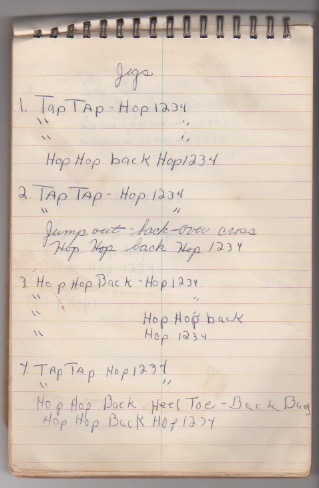 Jigs
1. Tap TAp - Hop 1234
" "
" "
Hop Hop back Hop 1234
2. TAP TAP - Hop 1234
" "
Jump out - back - over cross
Hop Hop back Hop 1234
3. Hop Hop Back - Hop 1234
" "
" Hop Hop back
" Hop 1234
4. TAp TAp Hop 1234
" "
Hop Hop Back Heel Toe - Back Back
Hop Hop Back Hop 1234